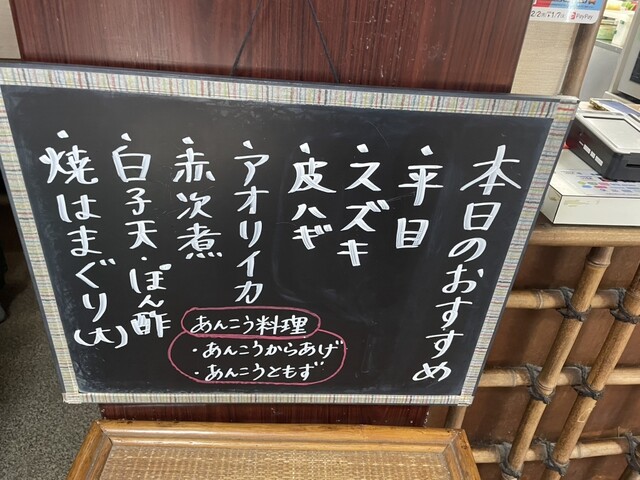 本日のおすすめ
・平目
・スズキ
・皮ハギ
・アオリイカ
・赤次煮
・白子天・ぽん酢
・焼はまぐり(大)
あんこう料理
・あんこうからあげ
・あんこうともず
PayPay